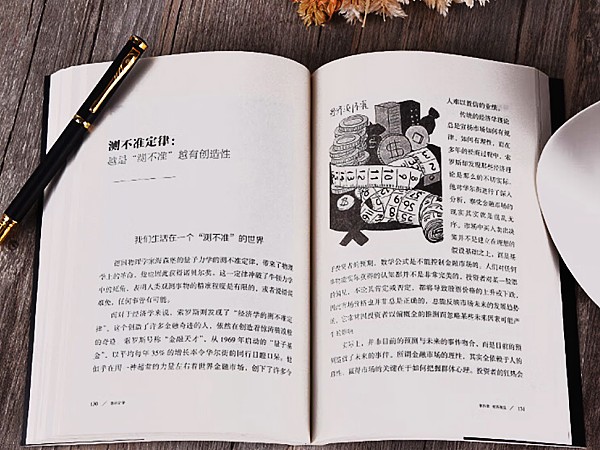 测不准定律:
越是“测不准”越有创造性
我们生活在一个“测不准”的世界
德国物理学家海森堡的量子力学的测不准定律，带来了物理
学上的革命，他也因此获得诺贝尔奖。这一定律冲破了牛顿力学
中的死角，表明人类观测事物的精准程度是有限的，或者说错误
难免，任何事皆有可能。
而对于经济学来说，索罗斯则发现了“经济学的测不准定
律”。这个创造了许多金融奇迹的人，依然在创造着惊涛骇浪般
的奇迹。索罗斯号称“金融天才”，从 1969 年启动的“量子基
金”，以平均每年 35% 的增长率令华尔街的同行目瞪口呆。他
似乎在用一种超常的力量左右着世界金融市场，创下了许多令
130 /
人难以置信的业绩。
传统的经济学理论
总是宣扬市场如何有规
律、如何有理性，而在
多年的经商过程中，索
罗斯却发现那些经济理
论是那么的不切实际。
他对华尔街进行了深入
分析，察觉金融市场的
现实其实就是混乱无
序。市场中买入卖出决
策并不是建立在理想的
假设基础之上，而是基
于投资者的预期，数学公式是不能控制金融市场的。人们对任何
事物能实际获得的认知都并不是非常完美的，投资者对某一股票
的偏见，不论其肯定或否定，都将导致股票价格的上升或下跌，
因此市场价格也并非总是正确的，总能反映市场未来的发展趋势
的，它常常因投资者以偏概全的推测而忽略某些未来因素可能产
生的影响。
实际上，并非目前的预测与未来的事件吻合，而是目前的预
测造就了未来的事件。所谓金融市场的理性，其实全依赖于人的
理性，赢得市场的关键在于如何把握群体心理。投资者的狂热会
/ 131